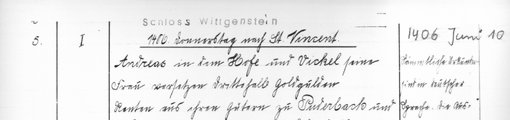 Schloss Wittgenstein
5. I 1406 Donnerstag nach St Vincent. 1406 Juni 10
Andreas in dem Hofe und Vickel seine Sämmtliche Urkunden
Frau versetzen drittehalb Goldgulden sind in deutscher
Renten aus ihren Gütern zu Puderbach und Sprache. Die